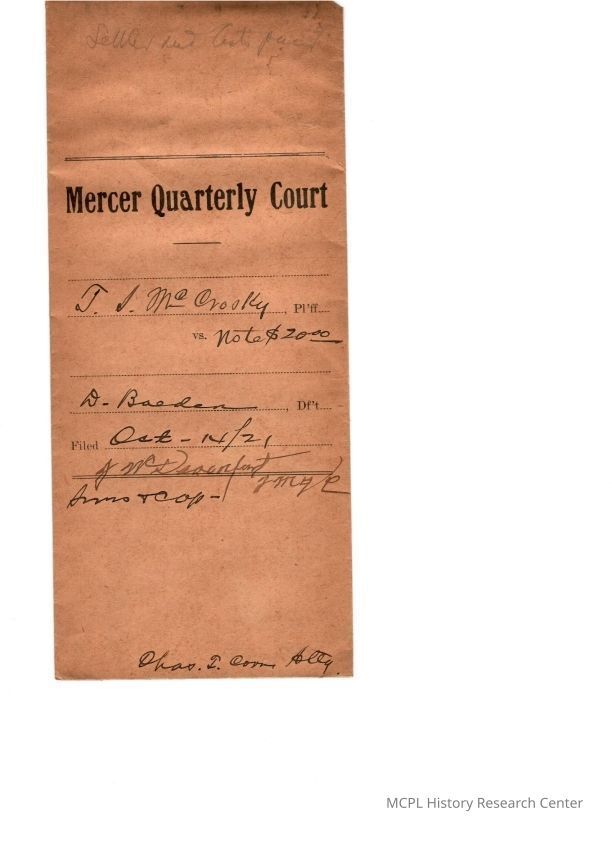 Settled and Costs paid
Mercer Quarterly Court
T. S. McCrosky, Pl'ff.
vs. Note $20.00
D. , Df't.
Filed Oct - 14/21,
J W Davenport
Sums & Cop -
Chas. T. Corn Atty.
MCPL History Research Center